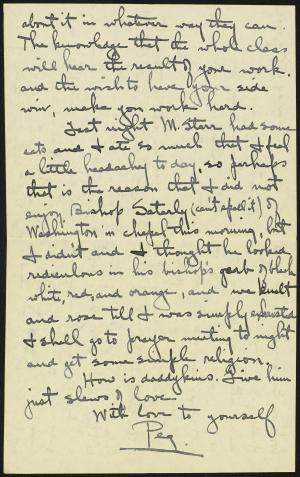 about it in whatever way they can.
The knowledge that the whole class
will hear the result of your work.
and the wish to have your side
win, make you work hard.
Last night M. Starr had some
eats and I ate so much that I feel
a little headachey to day, so perhaps
that is the reason that I did not
enjoy Bishop Saterly (can't spell it) of
Washington in chapel this morning, but
I didn't and I thought he looked
rediculous in his bishop's garb of black
white, red, and orange, and we knelt
and rose till I was simply exhausted
I shall go to prayer meeting to night
and get some simple religion.
How is daddykins. Give him
just slews of love.
With love to yourself
Peg.